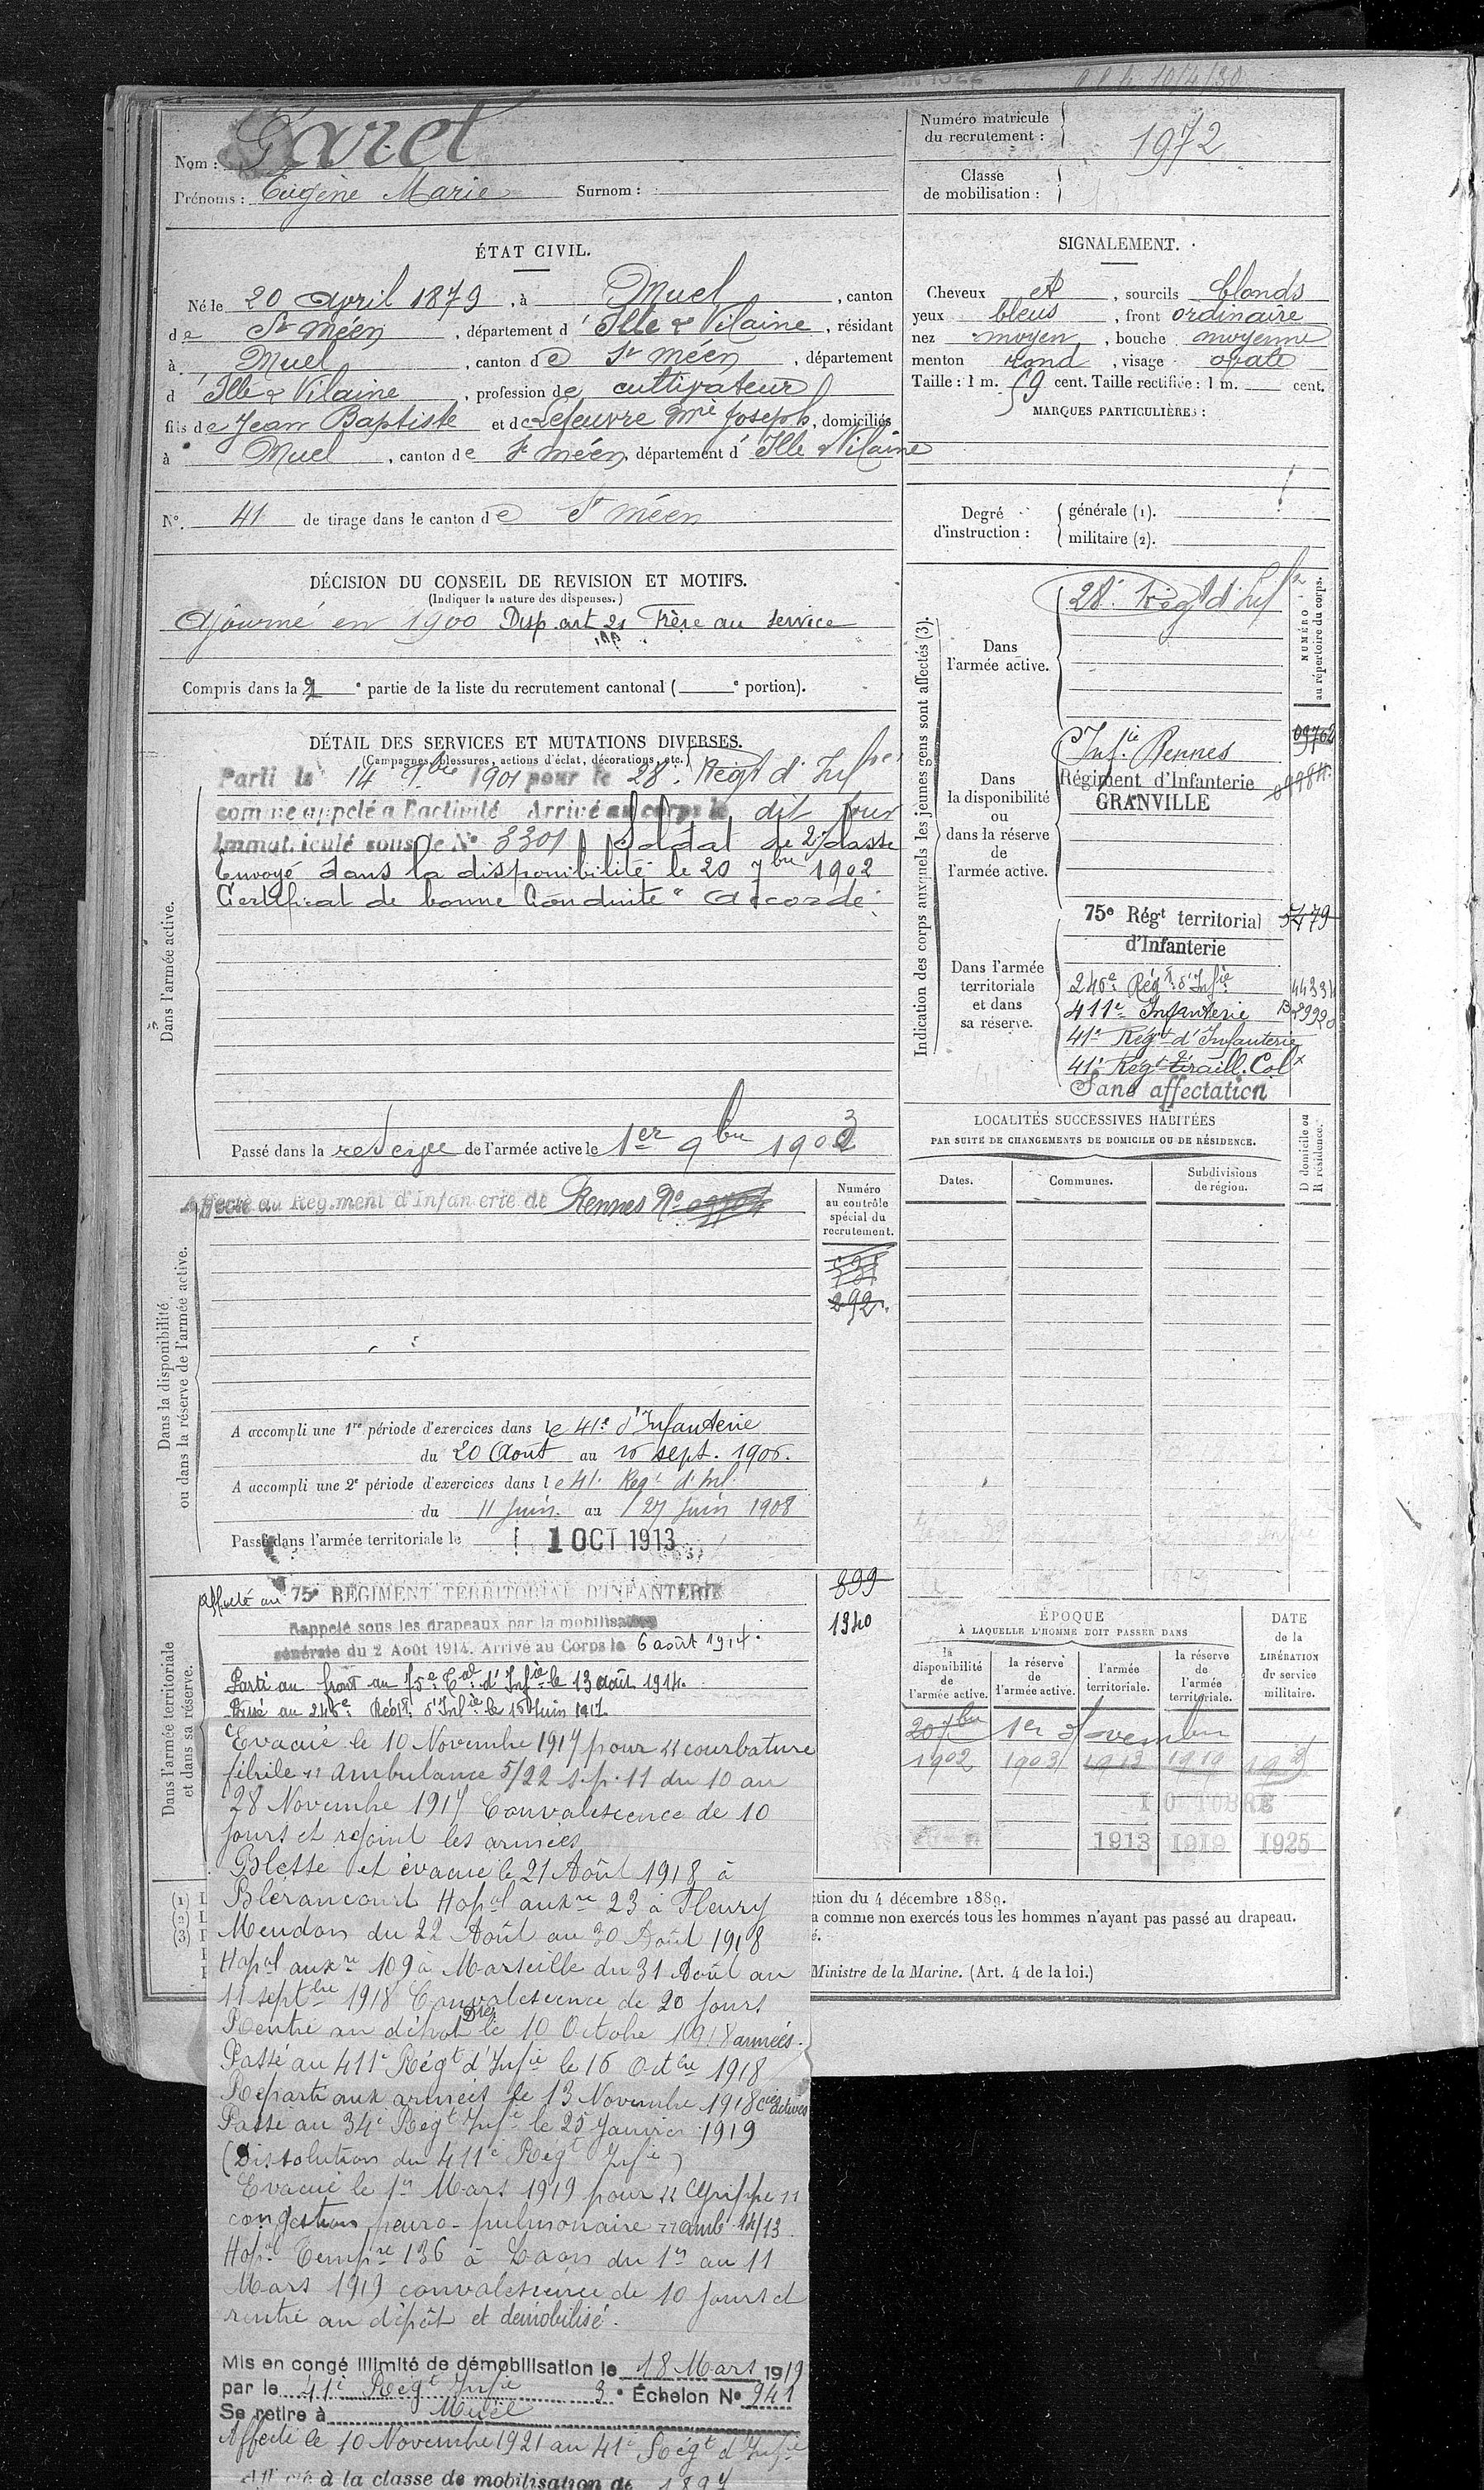 10/4/30
Nom : Garel
Prénoms : Eugène Marie Surnom :
Numéro matricule du recrutement : 1972
Classe de mobilisation :
ÉTAT CIVIL.
Né le 20 Avril 1879, à Muel, canton
de St Méen, département d'Ille & Vilaine, résidant
à Muel, canton de St Méen, département
d'Ille & Vilaine, profession de cultivateur
fils de Jean Baptiste et de Lefeuvre Mie Joseph, domiciliés
à Muel, canton de St Méen, département d'Ille & Vilaine
N°. 41 de tirage dans le canton de St Méen
SIGNALEMENT.
Cheveux et, sourcils blonds
yeux bleus, front ordinaire
nez moyen, bouche moyenne
menton rond, visage ovale
Taille : 1 m. 59 cent. Taille rectifiée : 1 m. cent.
MARQUES PARTICULIÈRES :
Degré d'instruction : générale (1).
militaire (2).
DÉCISION DU CONSEIL DE REVISION ET MOTIFS.
(Indiquer la nature des dispenses.)
Ajourné en 1900 Disp. art 21 Frère au service
Compris dans la 2e partie de la liste du recrutement cantonal ( e portion).
DÉTAIL DES SERVICES ET MUTATIONS DIVERSES.
(Campagnes, blessures, actions d'éclat, décorations, etc.)
Dans l'armée active.
Parti le 14 9bre 1901 pour le 28e Régt d'Infrie
comme appelé à l'activité Arrivé au corps le dit jour
Immatriculé sous le N° 3301 Soldat de 2e classe
Envoyé dans la disponibilité le 20 7bre 1902
Certificat de bonne Conduite "Accordé"
Passé dans la reserve de l'armée active le 1er 9bre 1903
Indication des corps auxquels les jeunes gens sont affectés (3).
NUMÉRO au répertoire du corps.
Dans l'armée active.
28e Régt d'Infie
Dans la disponibilité ou dans la réserve de l'armée active.
Infie Rennes
Régiment d'Infanterie
GRANVILLE
Dans l'armée territoriale et dans sa réserve.
75e Régt territorial 5479
d'Infanterie
246e Régt d'Infie
411e Infanterie
41e Régt d'Infanterie
41e Régt tiraill. Colx
Sans affectation
LOCALITÉS SUCCESSIVES HABITÉES
PAR SUITE DE CHANGEMENTS DE DOMICILE OU DE RÉSIDENCE.
Dates. Communes. Subdivisions de région. D domicile ou R résidence.
Dans la disponibilité ou dans la réserve de l'armée active.
Affecté au Régiment d'Infanterie de Rennes No
Numéro au contrôle spécial du recrutement.
292
A accompli une 1re période d'exercices dans le 41e d'Infanterie
du 20 Aout au 16 sept. 1906.
A accompli une 2e période d'exercices dans le 41e Regt d'Inf.
du 11 Juin au 27 Juin 1908
Passé dans l'armée territoriale le 1 OCT 1913
Dans l'armée territoriale et dans sa réserve.
affecté au 75e RÉGIMENT TERRITORIAL D'INFANTERIE
899
1340
Rappelé sous les drapeaux par la mobilisation
générale du 2 Août 1914. Arrivé au Corps le 6 août 1914.
Parti au front au 75e Tal d'Infie le 13 août 1914.
Passé au 246e Régt d'Infie le 16 Juin 1917
Evacué le 10 Novembre 1917 pour "courbature
fébrile" ambulance 5/22 s.p. 11 du 10 au
28 Novembre 1917 Convalescence de 10
jours et rejoint les armées
Blessé et évacué le 21 Août 1918 à
Blérancourt Hopal auxre 23 à Fleury
Meudon du 22 Août au 30 Août 1918
Hopal auxre 109 à Marseille du 31 Août au
11 septbre 1918 Convalescence de 20 jours
Rentré au dépôt Don le 10 Octobre 1918 armées.
Passé au 411e Régt d'Infie le 16 Octbre 1918
Reparti aux armées le 13 Novembre 1918
Passé au 34e Régt Infie le 25 Janvier 1919
(Dissolution du 411e Régt Infie)
Evacué le 1er Mars 1919 pour "Grippe"
congestion pleuro-pulmonaire " amb 14/13.
Hopal Tempre 136 à Laon du 1er au 11
Mars 1919 convalescence de 10 jours et
rentré au dépôt et démobilisé.
Mis en congé illimité de démobilisation le 18 Mars 1919
par le 41e Régt Infie 3e Échelon N° 941
Se retire à Muel
Affecté le 10 Novembre 1921 au 41e Régt d'Infie
à la classe de mobilisation de 1897
ÉPOQUE
À LAQUELLE L'HOMME DOIT PASSER DANS
la disponibilité de l'armée active. la réserve de l'armée active. l'armée territoriale. la réserve de l'armée territoriale.
DATE de la LIBÉRATION du service militaire.
20 7bre 1er Novembre
1902 1903 1913 1919
1 OCTOBRE
1913 1919 1925
(1)
(2)
(3)
ction du 4 décembre 1889.
a comme non exercés tous les hommes n'ayant pas passé au drapeau.
é.
Ministre de la Marine. (Art. 4 de la loi.)